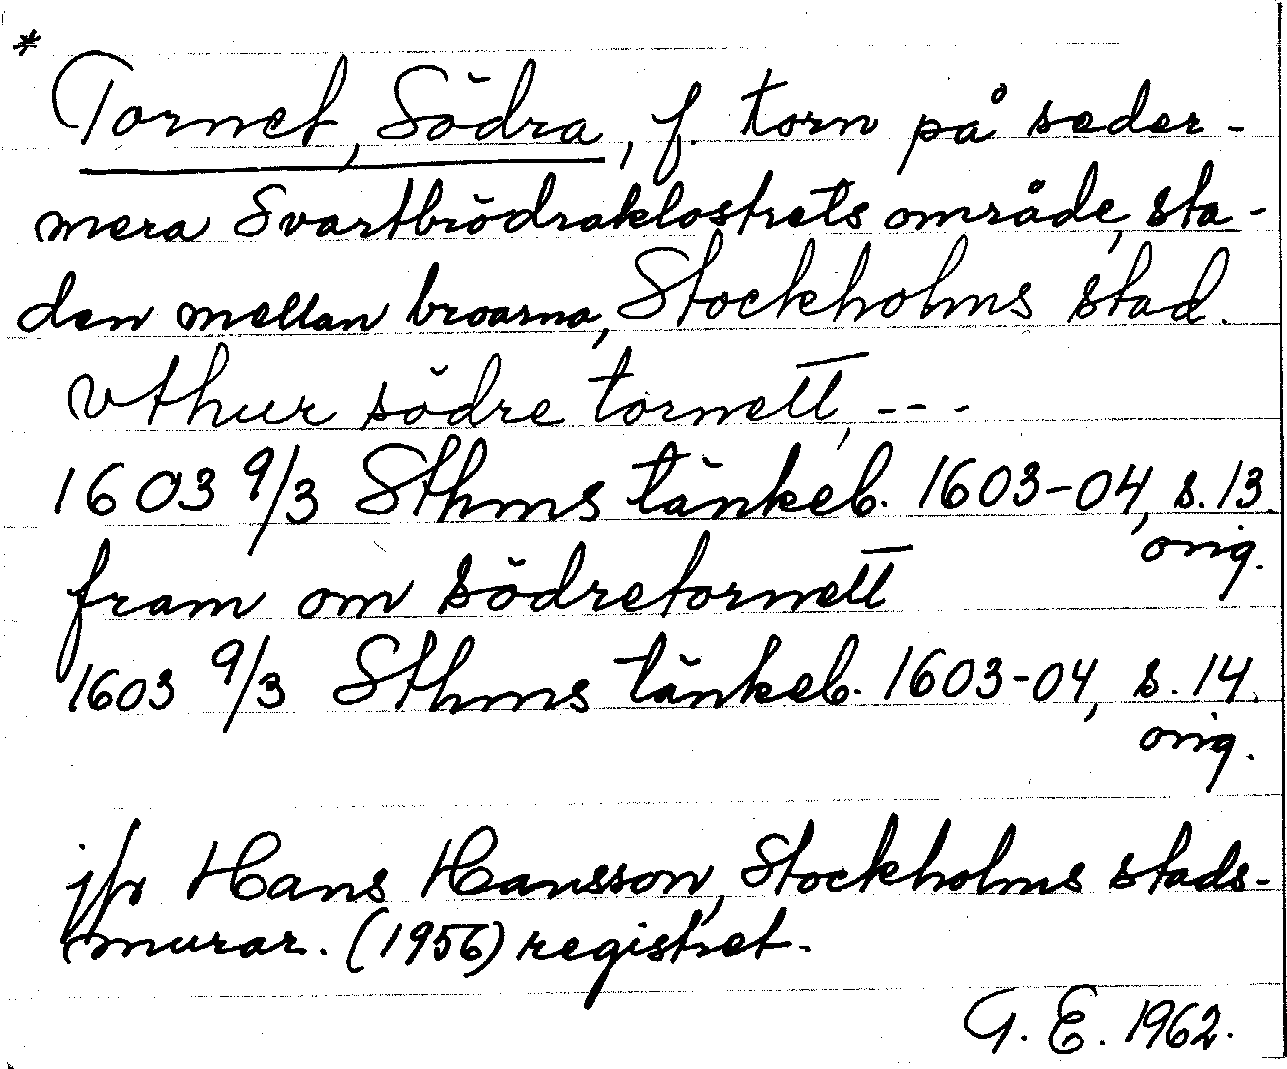 *
Tornet, Södra, f. torn på seder-
mera Svartbrödraklostrets område, sta-
den mellan broarna, Stockholms stad.
Vthur södre tornett, ---
1603 9/3 Sthms tänkeb. 1603-04, s. 13.
orig.
fram om södretornett
1603 9/3 Sthms tänkeb. 1603-04, s. 14.
orig.
jfr Hans Hansson, Stockholms stads-
murar. (1956) registret.
G. E. 1962.